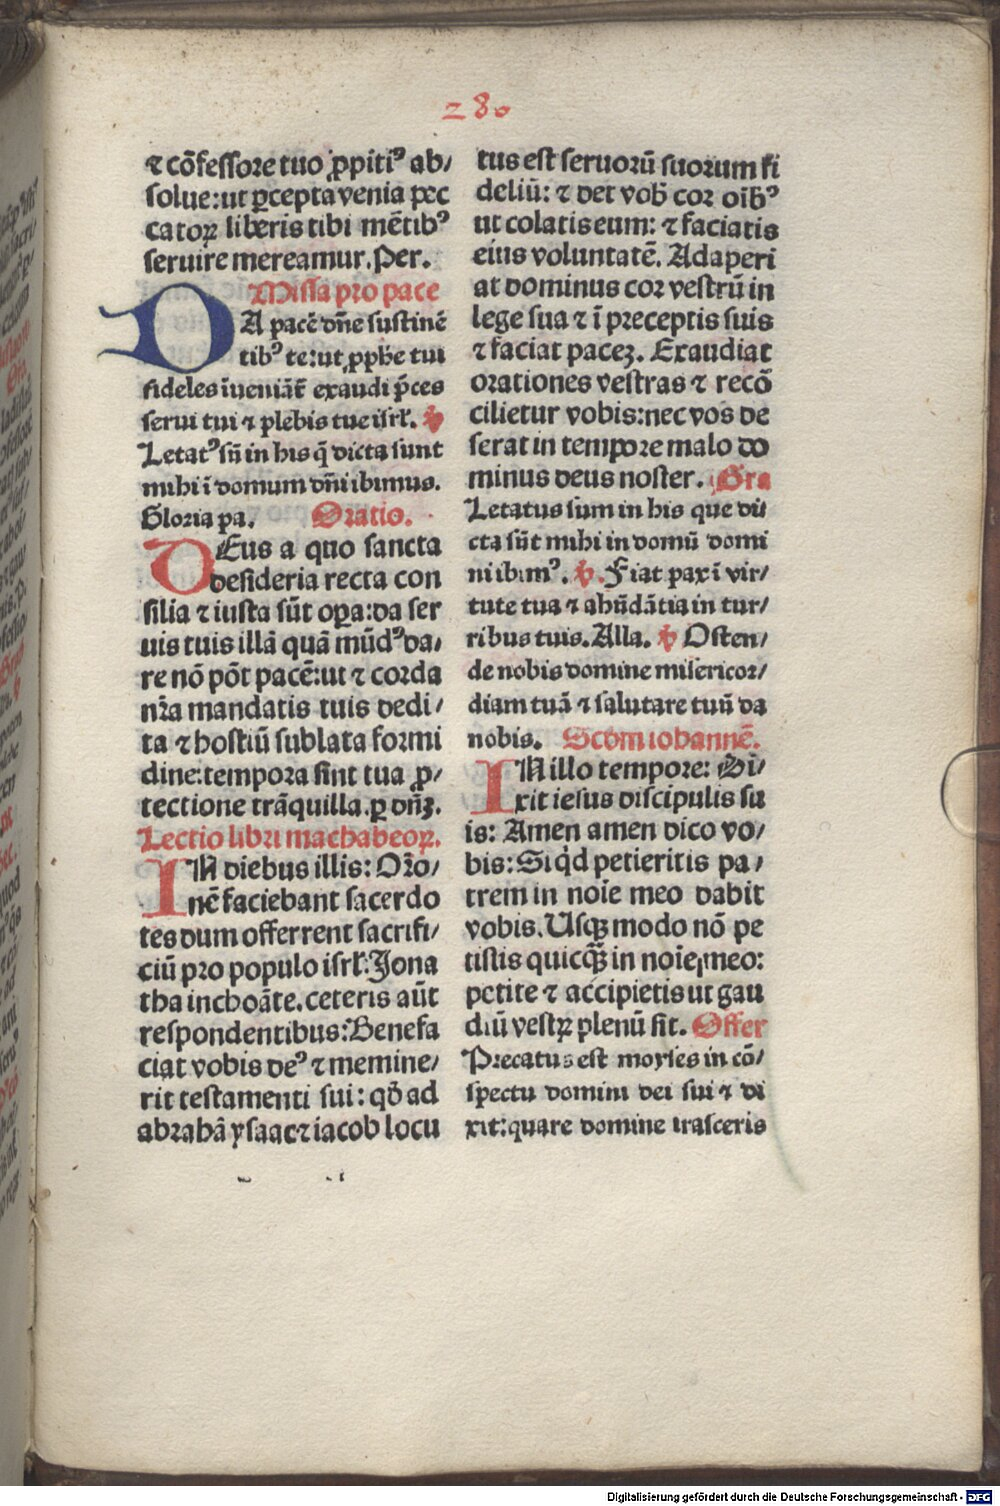 280
⁊ cōfessore tuo ꝓpitiꝰ ab/
solue: ut ꝑcepta venia pec
catoꝝ liberis tibi mētibꝰ
seruire mereamur. Per.
Missa pro pace
DA pacē dn̄e sustinē
tibꝰ te: ut ꝓphe tui
fideles īueniāt̄ exaudi p̄ces
serui tui ⁊ plebis tue isrl̄. ℣
Letatꝰ sū in his q̄ dicta sunt
mihi ī domum dn̄i ibimus.
Gloria pa. Oratio.
DEus a quo sancta
desideria recta con
silia ⁊ iusta sūt oꝑa: da ser
uis tuis illā quā mūdꝰ da/
re nō pōt pacē: ut ⁊ corda
nr̄a mandatis tuis dedi/
ta ⁊ hostiū sublata formi
dine: tempora sint tua ꝓ/
tectione trāquilla. ꝑ dn̄ꝫ.
Lectio libri machabeoꝝ.
IN diebus illis: Oro̅/
nē faciebant sacerdo
tes dum offerrent sacrifi/
ciū pro populo isrl̄: Jona
tha inchoāte. ceteris aūt
respondentibus: Benefa
ciat vobis deꝰ ⁊ memine/
rit testamenti sui: qđ ad
abrahā ysaac ⁊ iacob locu
tus est seruorū suorum fi
deliū: ⁊ det vob̄ cor oib̄ꝰ
ut colatis eum: ⁊ faciatis
eius voluntatē. Adaperi
at dominus cor vestrū in
lege sua ⁊ ī preceptis suis
⁊ faciat pacez. Exaudiat
orationes vestras ⁊ recō
cilietur vobis: nec vos de
serat in tempore malo do
minus deus noster. Gra
Letatus sum in his que di
cta sūt mihi in domū domi
ni ibimꝰ. ℣. Fiat pax ī vir/
tute tua ⁊ abūdātia in tur/
ribus tuis. Alla. ℣ Osten/
de nobis domine misericor/
diam tuā ⁊ salutare tuū da
nobis. Scdm iohannē.
IN illo tempore: Di/
xit iesus discipulis su
is: Amen amen dico vo/
bis: Si qd petieritis pa/
trem in noīe meo dabit
vobis. Usqꝫ modo nō pe
tistis quicq̄ in noīe meo:
petite ⁊ accipietis ut gau
diū vestꝝ plenū sit. Offer
Precatus est moyses in cō/
spectu domini dei sui ⁊ di
xit: quare domine irasceris
Digitalisierung gefördert durch die Deutsche Forschungsgemeinschaft - DFG